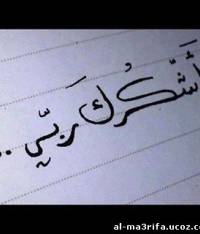 أَشْكُرُكَ رَبِّي ..
al-ma3rifa.ucoz.c